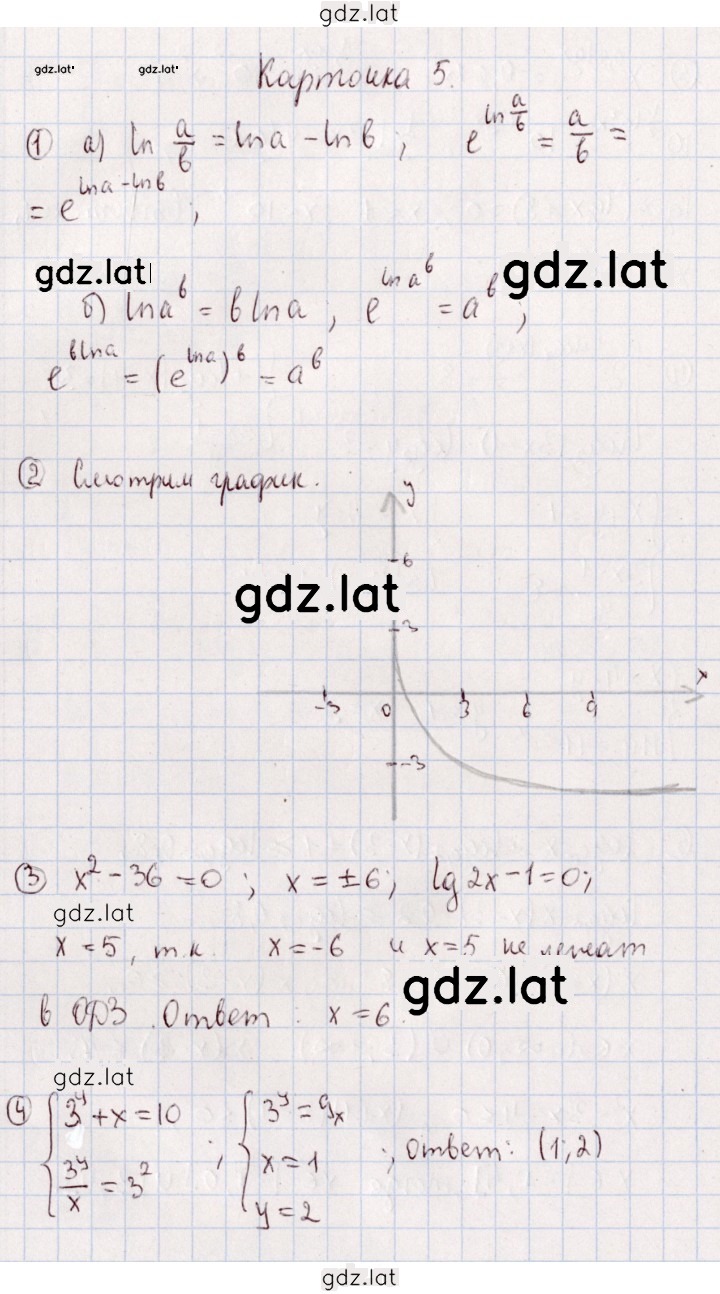 gdz.lat
gdz.lat gdz.lat
Карточка 5.
① а) ln a/в = lna - lnв ; e^(ln a/в) = a/в =
= e^(lna - lnв) ;
gdz.lat gdz.lat
б) lna^в = вlna ; e^(lna^в) = a^в ;
e^(вlna) = (e^(lna))^в = a^в
② Смотрим график.
y
6
gdz.lat
3
x
-3 0 3 6 9
-3
③ x² - 36 = 0 ; x = ±6 ; lg2x - 1 = 0 ;
gdz.lat
x = 5 , т.к. x = -6 и x = 5 не лежат
gdz.lat
в ОДЗ. Ответ : x = 6.
gdz.lat
④ { 3^y + x = 10 ; { 3^y = 9x
{ 3^y/x = 3² { x = 1 ; ответ: (1; 2)
{ y = 2
gdz.lat